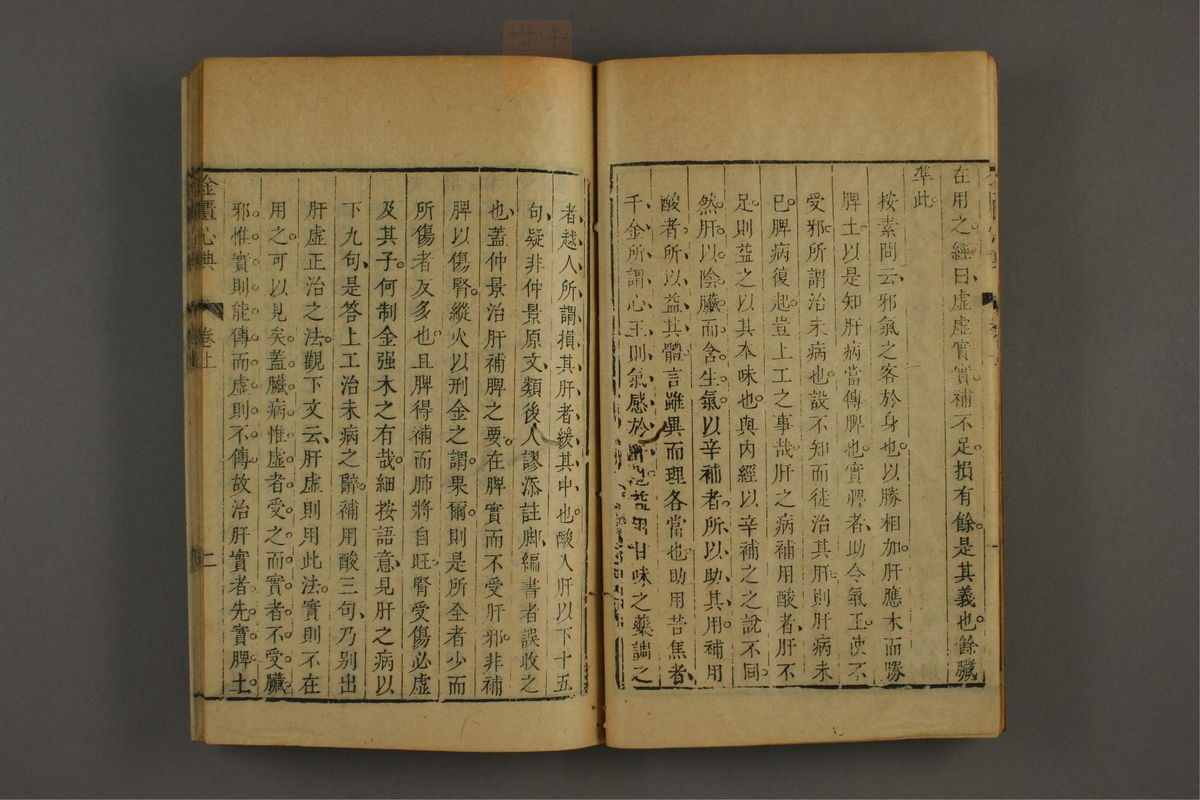 在用之。經曰虛虛實實。補不足。損有餘。是其義也。餘臟
準此。
按素問云。邪氣之客於身也。以勝相加。肝應木而勝
脾土。以是知肝病當傳脾也。實脾者。助令氣王。使不
受邪。所謂治未病也。設不知而徒治其肝。則肝病未
已。脾病復起。豈上工之事哉。肝之病補用酸者。肝不
足。則益之以其本味也。與內經以辛補之之說不同。
然肝以陰臟而含生氣。以辛補者。所以助其用。補用
酸者。所以益其體。言雖異而理各當也。助用苦焦者、
千金所謂心王則氣感於肝也。益用甘味之藥調之
者、越人所謂損其肝者緩其中也。酸入肝以下十五
句、疑非仲景原文、類後人謬添註脚、編書者誤收之
也、蓋仲景治肝補脾之要。在脾實而不受肝邪。非補
脾以傷腎。縱火以刑金之謂。果爾。則是所全者少而
所傷者反多也。且脾得補而肺將自旺。腎受傷必虛
及其子。何制金强木之有哉。細按語意、見肝之病以
下九句、是答上工治未病之辭。補用酸三句、乃别出
肝虛正治之法。觀下文云、肝虛則用此法。實則不在
用之。可以見矣。蓋臟病惟虛者受之。而實者不受。臟
邪惟實則能傳。而虛則不傳。故治肝實者。先實脾土。
金匱心典
卷上
二